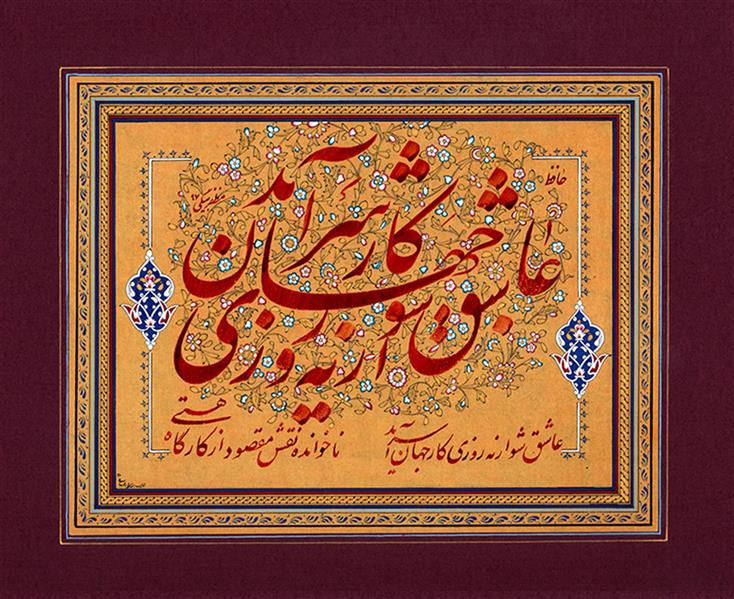 حافظ
عاشق شو ار نه روزی کار جهان سر آید
عاشق شو ار نه روزی کار جهان سرآید
ناخوانده نقش مقصود از کارگاه هستی